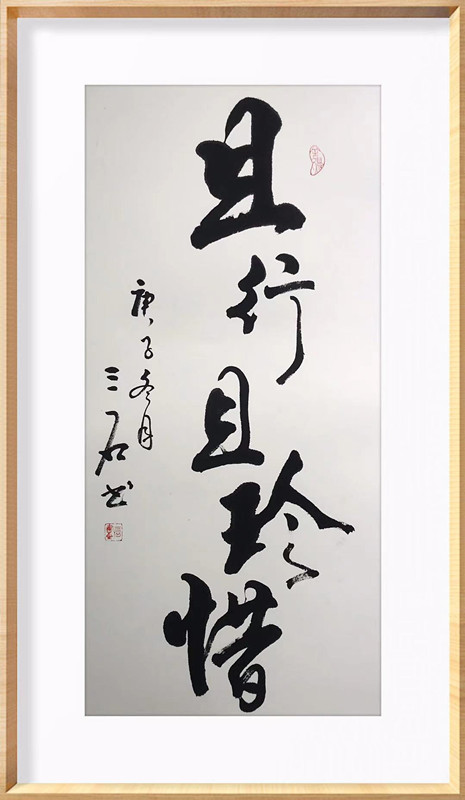 且行且珍惜
庚子冬月
三石书